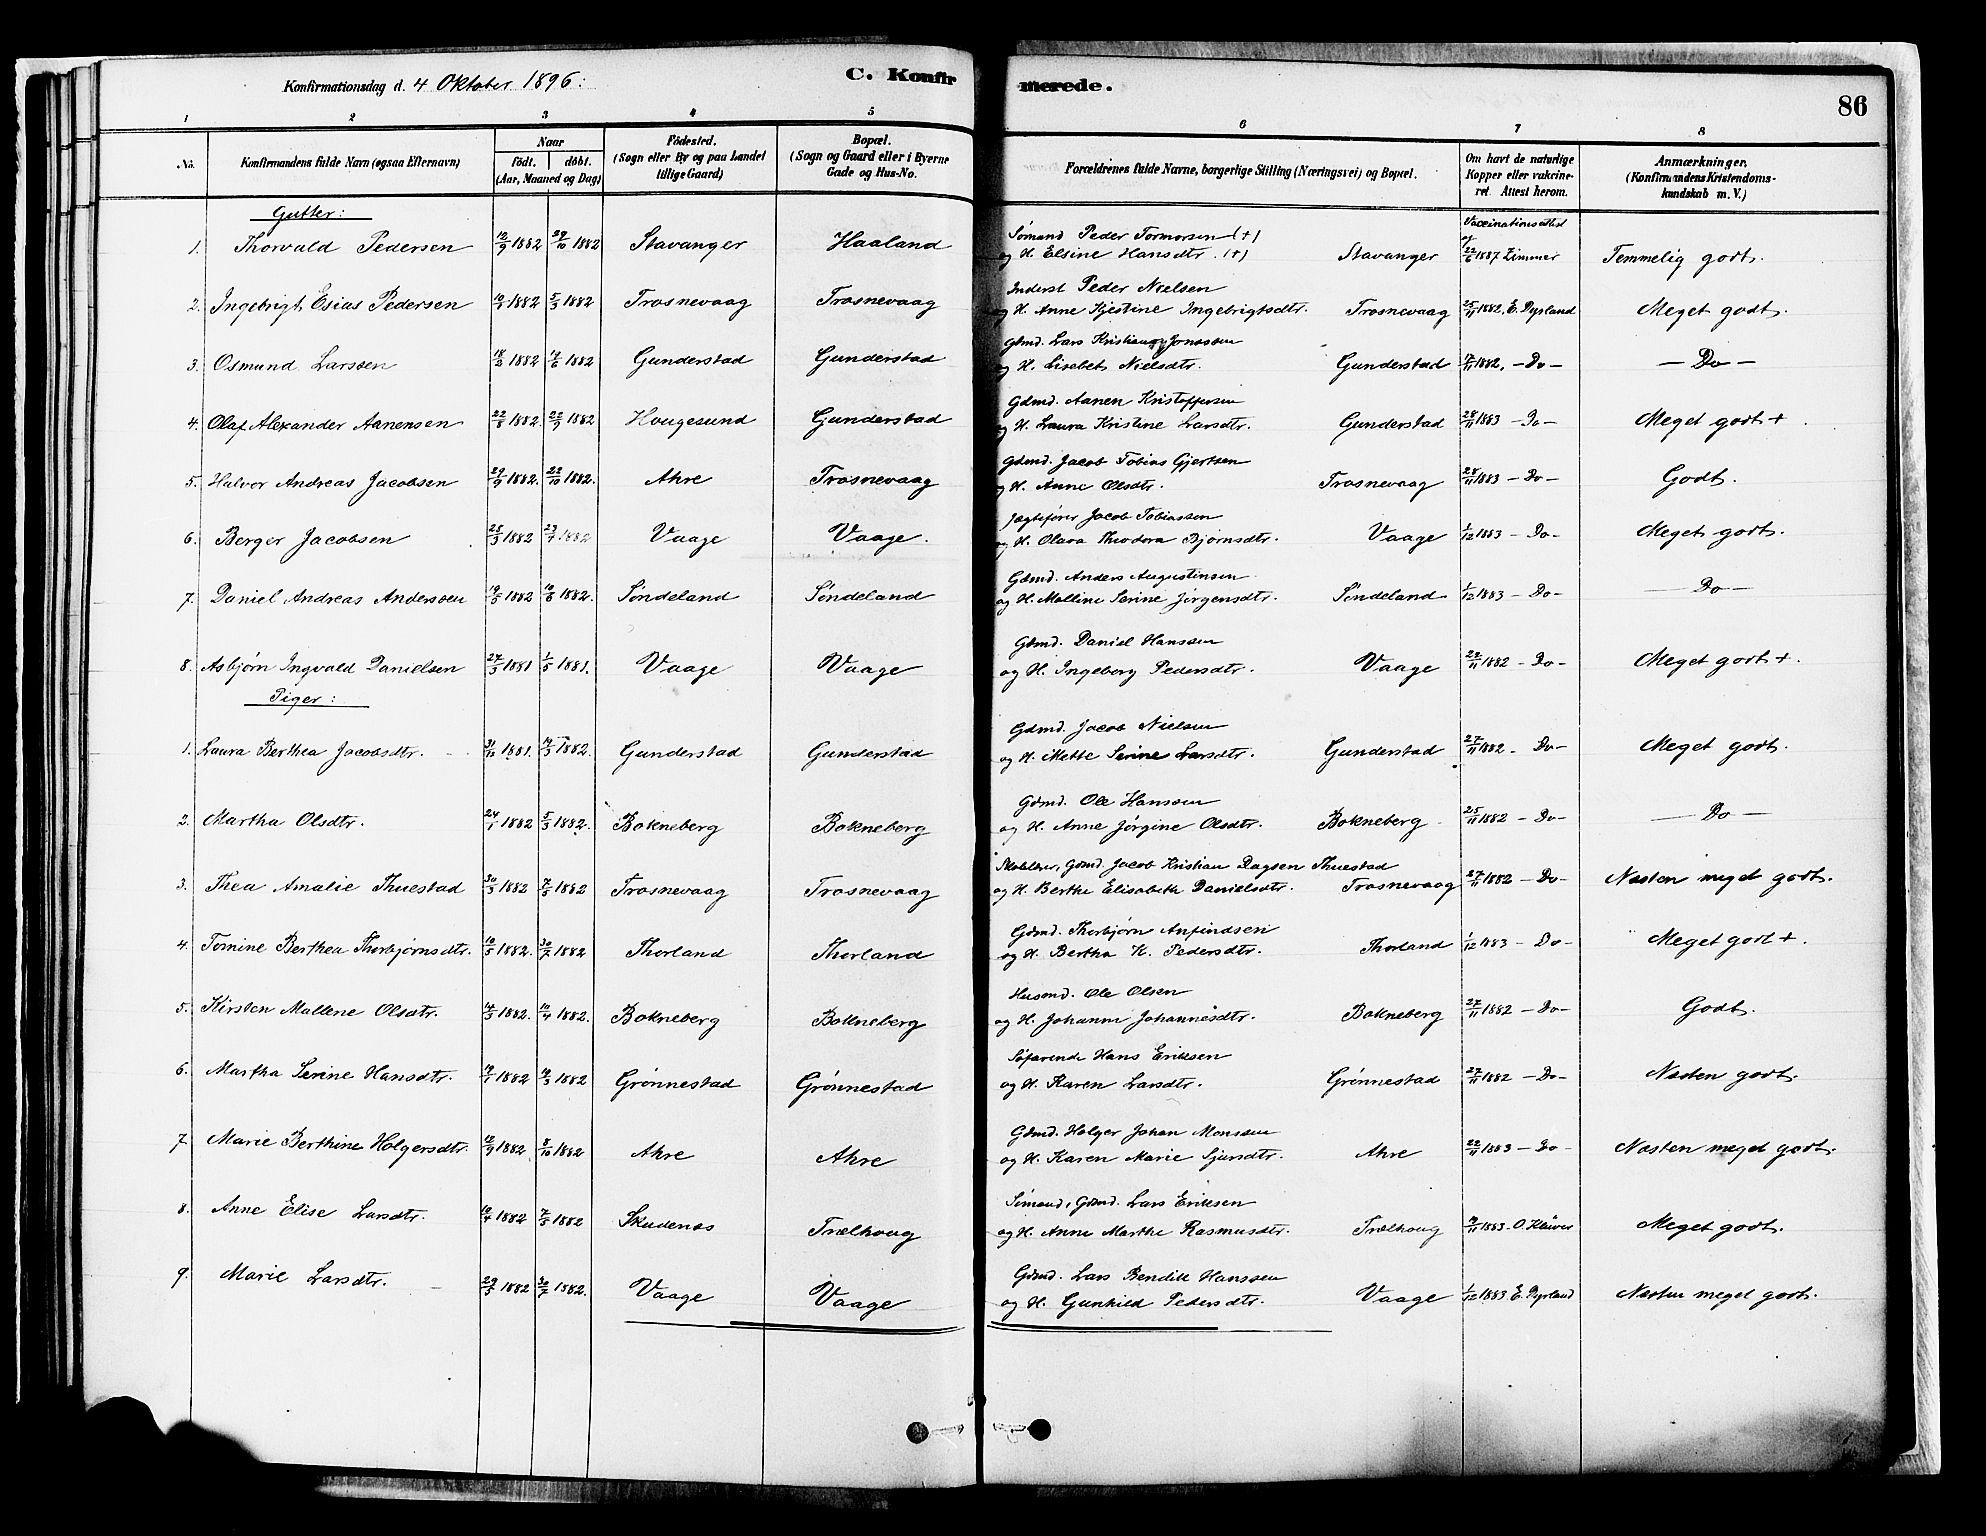 Konfirmationsdag d. 4 Oktober 1896.
C. Konfirmerede.
86
1 2 3 4 5 6 7 8
No. Konfirmandens fulde Navn (ogsaa Efternavn) Naar født. døbt. (Aar, Maaned og Dag) Fødested. (Sogn eller By og paa Landet tillige Gaard) Bopæl. (Sogn og Gaard eller i Byerne Gade og Hus-No. Forældrenes fulde Navne, borgerlige Stilling (Næringsvei) og Bopæl. Om havt de naturlige Kopper eller vakcineret. Attest herom. Anmærkninger. (Konfirmandens Kristendomskundskab m. V.)
Gutter:
Vaccinationsattest af
1. Thorvald Pedersen 12/9 1882 29/10 1882 Stavanger Haaland Sømand Peder Tormorsen (+)
og H. Elsine Hansdtr. (+) Stavanger 22/6 1887 Zimmer Temmelig godt.
2. Ingebrigt Esias Pedersen 1882 5/3 1882 Trosnevaag Trosnevaag Inderst Peder Nielsen
og H. Anne Kjestine Ingebrigtsdtr. Trosnevaag 25/11 1882, E. Dyrland Meget godt.
3. Osmund Larsen 1882 1882 Gunderstad Gunderstad Gbmd. Lars Kristian Jonassen
og H. Lisebet Nielsdtr. Gunderstad 17/11 1882, - Do - - Do -
4. Olaf Alexander Aanensen 22/8 1882. 22/9 1882 Hougesund Gunderstad Gdmd. Aanen Kristoffersen
og H. Laura Kristine Larsdtr. Gunderstad 28/11 1883 - Do - Meget godt +
5. Halvor Andreas Jacobsen 29/9 1882. 22/10 1882. Ahre Trosnevaag Gdmd. Jacob Tobias Gjertsen
og H. Anne Olsdtr. Trosnevaag 28/11 1883 - Do - Godt.
6. Berger Jacobsen 25/3 1882 23/7 1882 Vaage Vaage. Jægtefører Jacob Tobiassen
og H. Olava Theodora Bjørnsdtr. Vaage 1/12 1883 - Do - Meget godt.
7. Daniel Andreas Andersen 1882 1882. Søndeland Søndeland Gdmd. Anders Augustinsen
og H. Malline Serine Jørgensdtr. Søndeland 1/12 1883 - Do - - Do -
8. Asbjørn Ingvald Danielsen 27/3 1881 1/5 1881. Vaage Vaage Gbmd. Daniel Hanssen
og H. Ingeborg Pedersdtr. Vaage 22/11 1882 - Do - Meget godt +.
Piger:
1. Laura Berthea Jacobsdtr. 1881. 1882. Gunderstad Gunderstad Gdmd. Jacob Nielsen
og H. Mette Serine Larsdtr. Gunderstad 27/11 1882 - Do - Meget godt.
2. Martha Olsdtr. 24/1 1882 5/3 1882. Bokneberg Bokneberg Gdmd. Ole Hanssen
og H. Anne Jørgine Olsdtr. Bokneberg 25/11 1882 - Do - - Do -
3. Thea Amalie Thuestad 30/3 1882 7/5 1882 Trosnevaag Trosnevaag Skolelærer, Gdmd. Jacob Kristian Dagsen Thuestad
og H. Berthe Elisabeth Danielsdtr. Trosnevaag 27/11 1882 - Do - Næsten meget godt.
4. Tomine Berthea Thorbjørnsdtr. 10/5 1882. 30/7 1882 Thorland Thorland Gdmd. Thorbjørn Anfindsen
og H. Bertha K. Pedersdtr. Thorland 1/12 1883 - Do - Meget godt +.
5. Kirsten Mallene Olsdtr. 14/3 1882. 10/4 1882. Bokneberg Bokneberg Husmd. Ole Olsen
og H. Johanne Johannesdtr. Bokneberg 27/11 1882 - Do - Godt.
6. Martha Serine Hansdtr. 1882 1882 Grønnestad Grønnestad Søfarende Hans Eriksen
og H. Karen Larsdtr. Grønnestad 27/11 1882 - Do - Næsten godt.
7. Marie Berthine Holgersdtr. 12/9 1882 8/10 1882 Ahre Ahre Gdmd. Holger Johan Monssen
og H. Karen Marie Sjursdtr. Ahre 22/11 1883 - Do - Næsten meget godt.
8. Anne Elise Larsdtr. 10/4 1882 7/5 1882 Skudenæs Trælhoug Sømand, Gdmd. Lars Eriksen
og H. Anne Marthe Rasmusdtr. Trælhoug 1883 - O. Kluver Meget godt.
9. Marie Larsdtr. 29/5 1882 30/7 1882. Vaage Vaage Gdmd. Lars Bendik Hanssen
og H. Gunhild Pedersdtr. Vaage 1/12 1883 E. Dyrland Næsten meget godt.